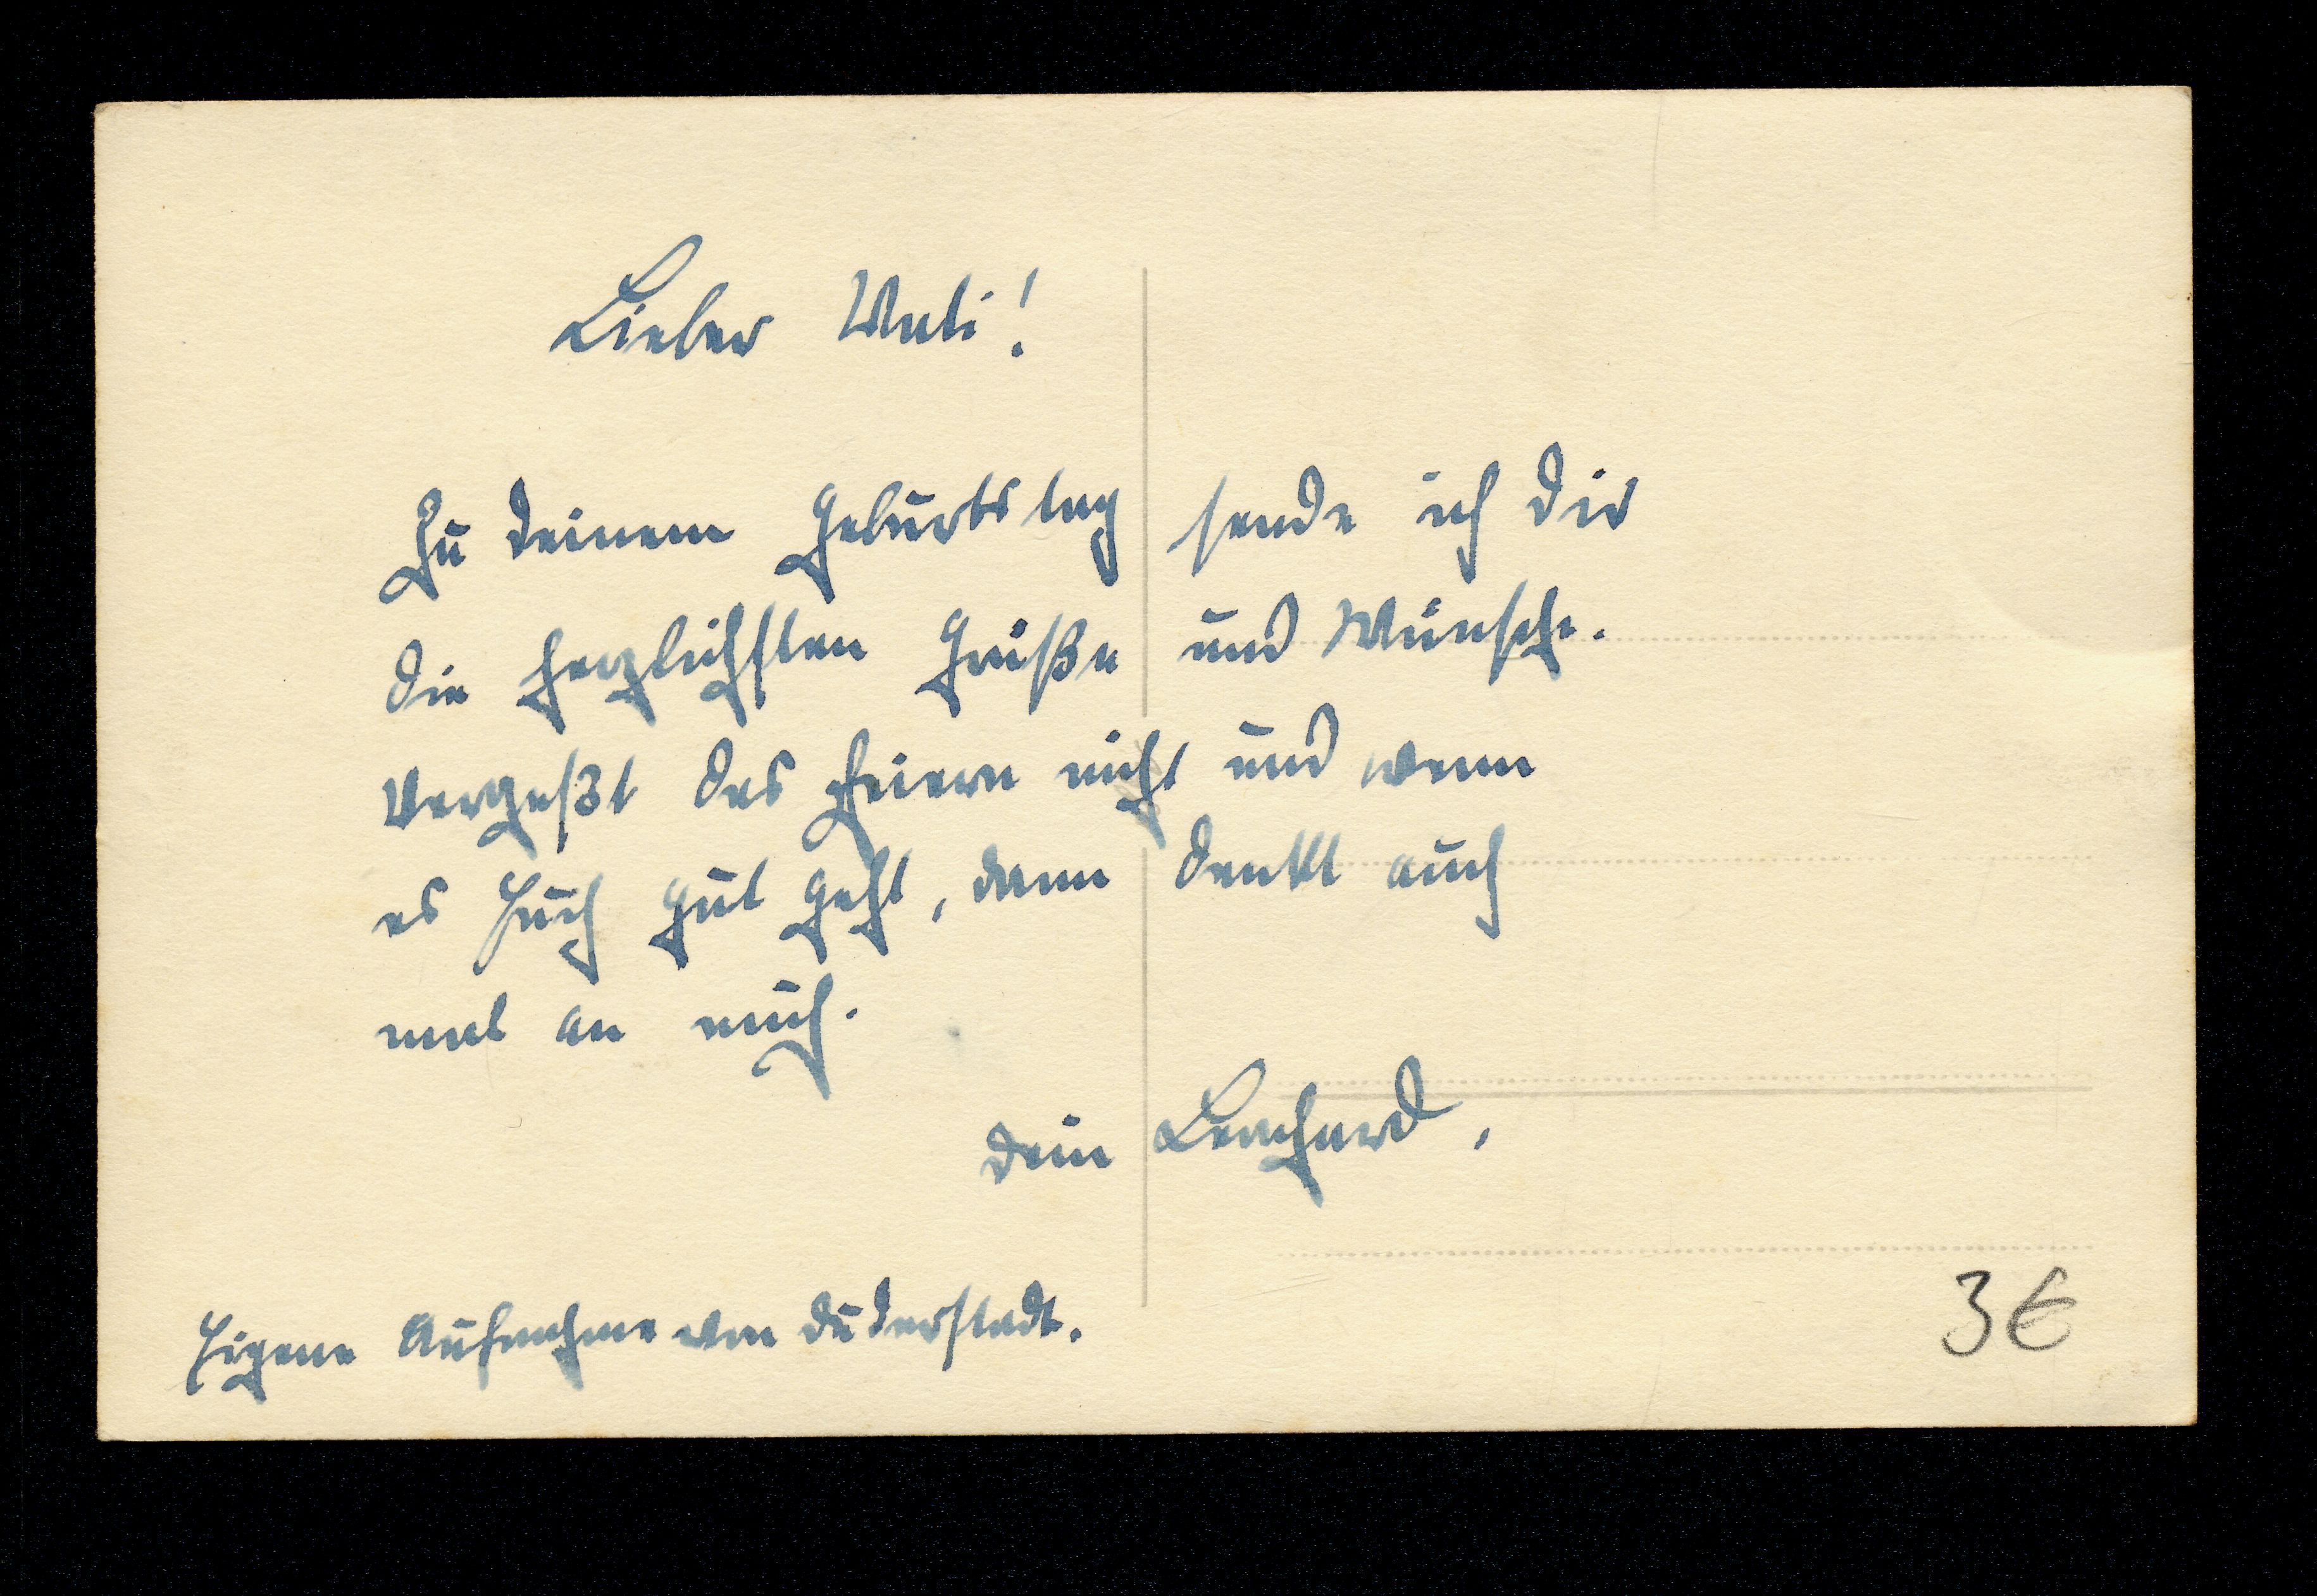 Lieber Wali!
Zu deinem Geburtstag sende ich dir
die herzlichsten Grüße und Wünsche.
Vergeßt das Feiern nicht und wenn
es Euch gut geht, dann denkt auch
mal an mich.
Dein Bernhard,
Eigene Aufnahme von Duderstadt.
3€